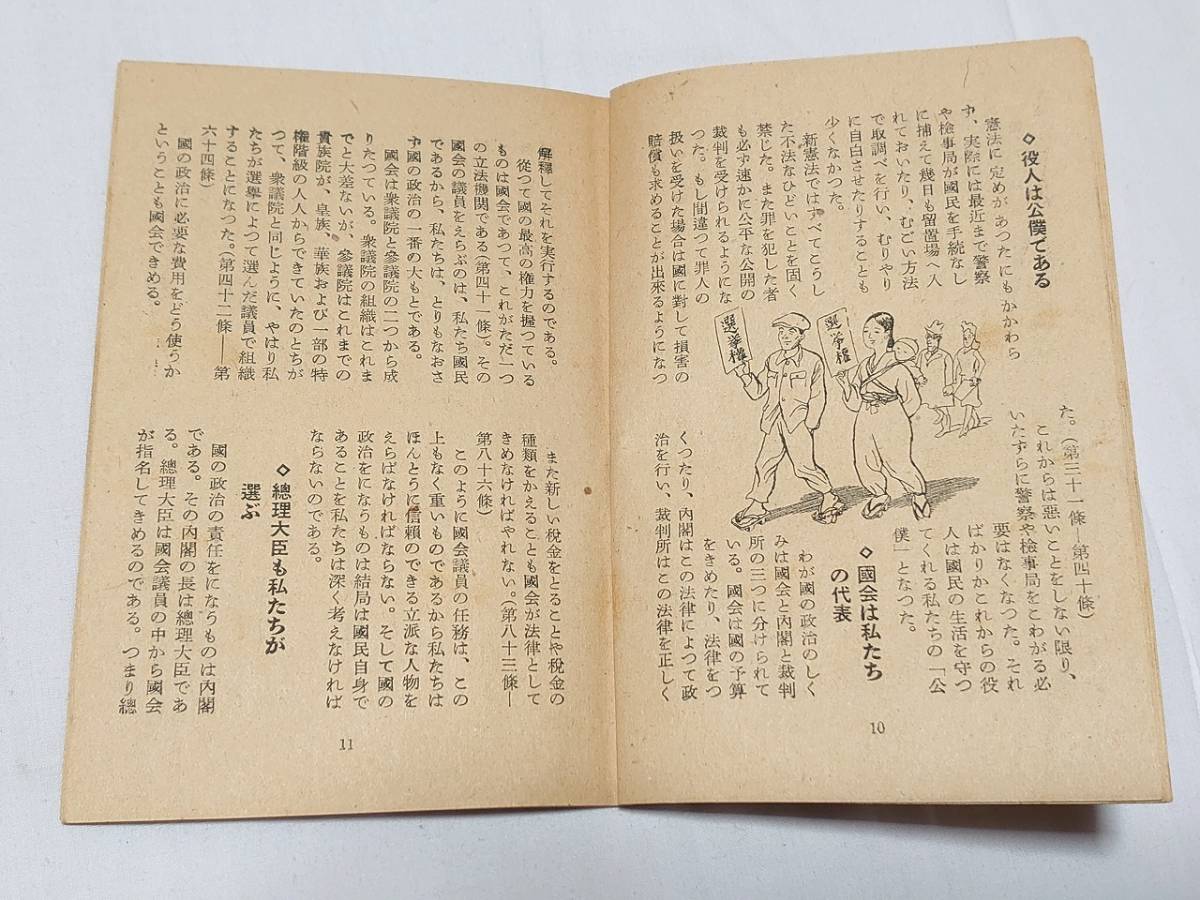 ◇役人は公僕である
憲法に定めがあつたにもかかわら
ず、実際には最近まで警察
や檢事局が國民を手続なし
に捕えて幾日も留置場へ入
れておいたり、むごい方法
で取調べを行い、むりやり
に自白させたりすることも
少くなかつた。
新憲法ではすべてこうし
た不法なひどいことを固く
禁じた。また罪を犯した者
も必ず速かに公平な公開の
裁判を受けられるようにな
つた。もし間違つて罪人の
扱いを受けた場合は國に対して損害の
賠償も求めることが出來るようになつ
選挙権
選挙権
た。(第三十一條—第四十條)
これからは悪いことをしない限り、
いたずらに警察や檢事局をこわがる必
要はなくなつた。それ
ばかりかこれからの役
人は國民の生活を守つ
てくれる私たちの「公
僕」となつた。
◇國会は私たち
の代表
わが國の政治のしく
みは國会と內閣と裁判
所の三つに分けられて
いる。國会は國の予算
をきめたり、法律をつ
くつたり、內閣はこの法律によつて政
治を行い、裁判所はこの法律を正しく
10
解釋してそれを実行するのである。
從つて國の最高の権力を握つている
ものは國会であつて、これがただ一つ
の立法機関である(第四十一條)。その
國会の議員をえらぶのは、私たち國民
であるから、私たちは、とりもなおさ
ず國の政治の一番の大もとである。
國会は衆議院と參議院の二つから成
りたつている。衆議院の組織はこれま
でと大差ないが、參議院はこれまでの
貴族院が、皇族、華族および一部の特
権階級の人人からできていたのとちが
つて、衆議院と同じように、やはり私
たちが選挙によつて選んだ議員で組織
することになつた。(第四十二條——第
六十四條)
國の政治に必要な費用をどう使うか
ということも國会できめる。
また新しい税金をとることや税金の
種類をかえることも國会が法律として
きめなければやれない。(第八十三條—
第八十六條)
このように國会議員の任務は、この
上もなく重いものであるから私たちは
ほんとうに信頼のできる立派な人物を
えらばなければならない。そして國の
政治をになうものは結局は國民自身で
あることを私たちは深く考えなければ
ならないのである。
◇總理大臣も私たちが
選ぶ
國の政治の責任をになうものは內閣
である。その內閣の長は總理大臣であ
る。總理大臣は國会議員の中から國会
が指名してきめるのである。つまり總
11